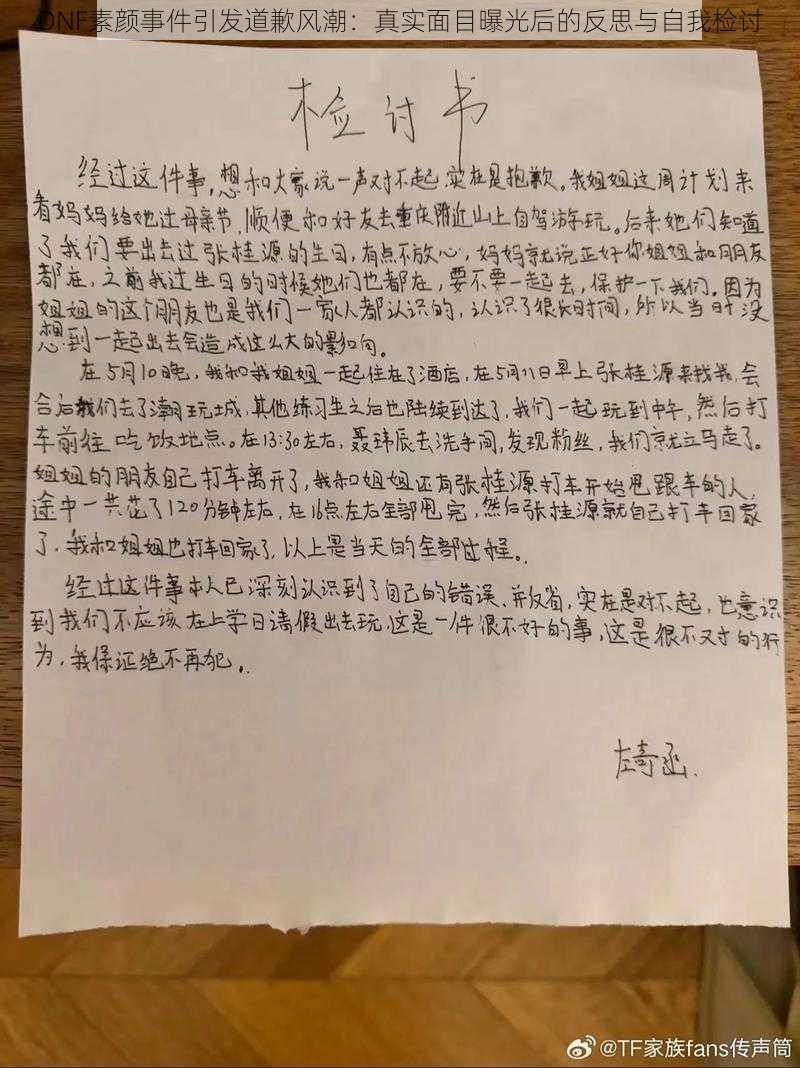 DNF素颜事件引发道歉风潮：真实面目曝光后的反思与自我检讨
检讨书
经过这件事，想和大家说一声对不起，实在是抱歉。我姐姐这周计划来
看妈妈给她过母亲节，顺便和好友去重庆附近山上自驾游玩。后来她们知道
了我们要出去过张桂源的生日，有点不放心，妈妈就说正好你姐姐和朋友
都在，之前我过生日的时候她们也都在，要不要一起去，保护一下我们。因为
姐姐的这个朋友也是我们一家人都认识的，认识了很长时间，所以当时没
想到一起出去会造成这么大的影响。
在5月10晚，我和我姐姐一起住在了酒店，在5月11日早上张桂源来找我，会
合后我们去了潮玩城，其他练习生之后也陆续到达了，我们一起玩到中午，然后打
车前往吃饭地点。在13:30左右，聂玮辰去洗手间，发现粉丝，我们就立马走了。
姐姐的朋友自己打车离开了，我和姐姐还有张桂源打车开始甩跟车的人，
途中一共花了120分钟左右，在16点左右全部甩完，然后张桂源就自己打车回家
了，我和姐姐也打车回家了，以上是当天的全部过程。
经过这件事本人已深刻认识到了自己的错误，并反省，实在是对不起，也意识
到我们不应该在上学日请假出去玩，这是一件很不好的事，这是很不对的行
为，我保证绝不再犯。
左奇函.
@TF家族fans传声筒